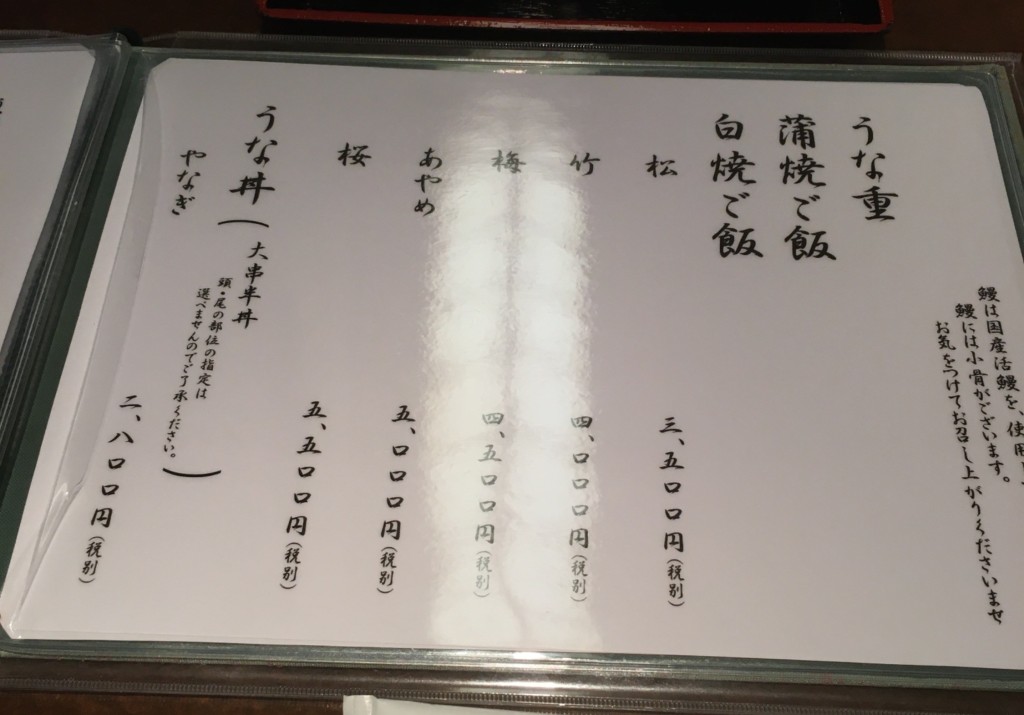 鰻は国産活鰻を、使用
鰻には小骨がございます。
お気をつけてお召し上がりくださいませ
うな重
蒲焼ご飯
白焼ご飯
松 三、五〇〇円(税別)
竹 四、〇〇〇円(税別)
梅 四、五〇〇円(税別)
あやめ 五、〇〇〇円(税別)
桜 五、五〇〇円(税別)
うな丼(大串半丼
頭・尾の部位の指定は
選べませんのでご了承ください。)
やなぎ 二、八〇〇円(税別)